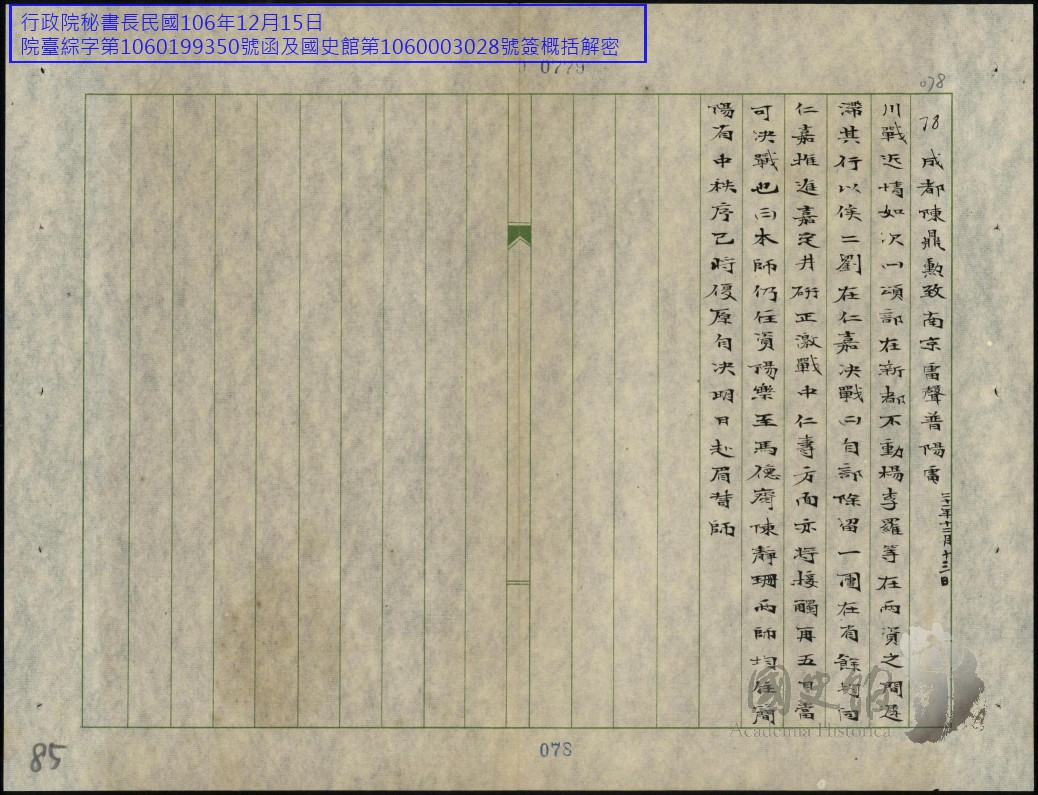 行政院秘書長民國106年12月15日
院臺綜字第1060199350號函及國史館第1060003028號簽概括解密
0779
078
78 成都陳鼎勲致南京雷聲普陽電 二十一年十二月十三日
川戰近情如次㈠頌部在新都不動楊李羅等在兩資之間遲
滯其行以俟二劉在仁嘉決戰㈡自部除留一團在省餘均向
仁嘉推進嘉定井研正激戰中仁壽方面亦將接觸再五日當
可決戰也㈢本師仍任資陽樂至馬德齋陳靜珊兩師均任簡
陽省中秩序已時復原自決明日赴眉督師
國史館
Academia Historica
078
85